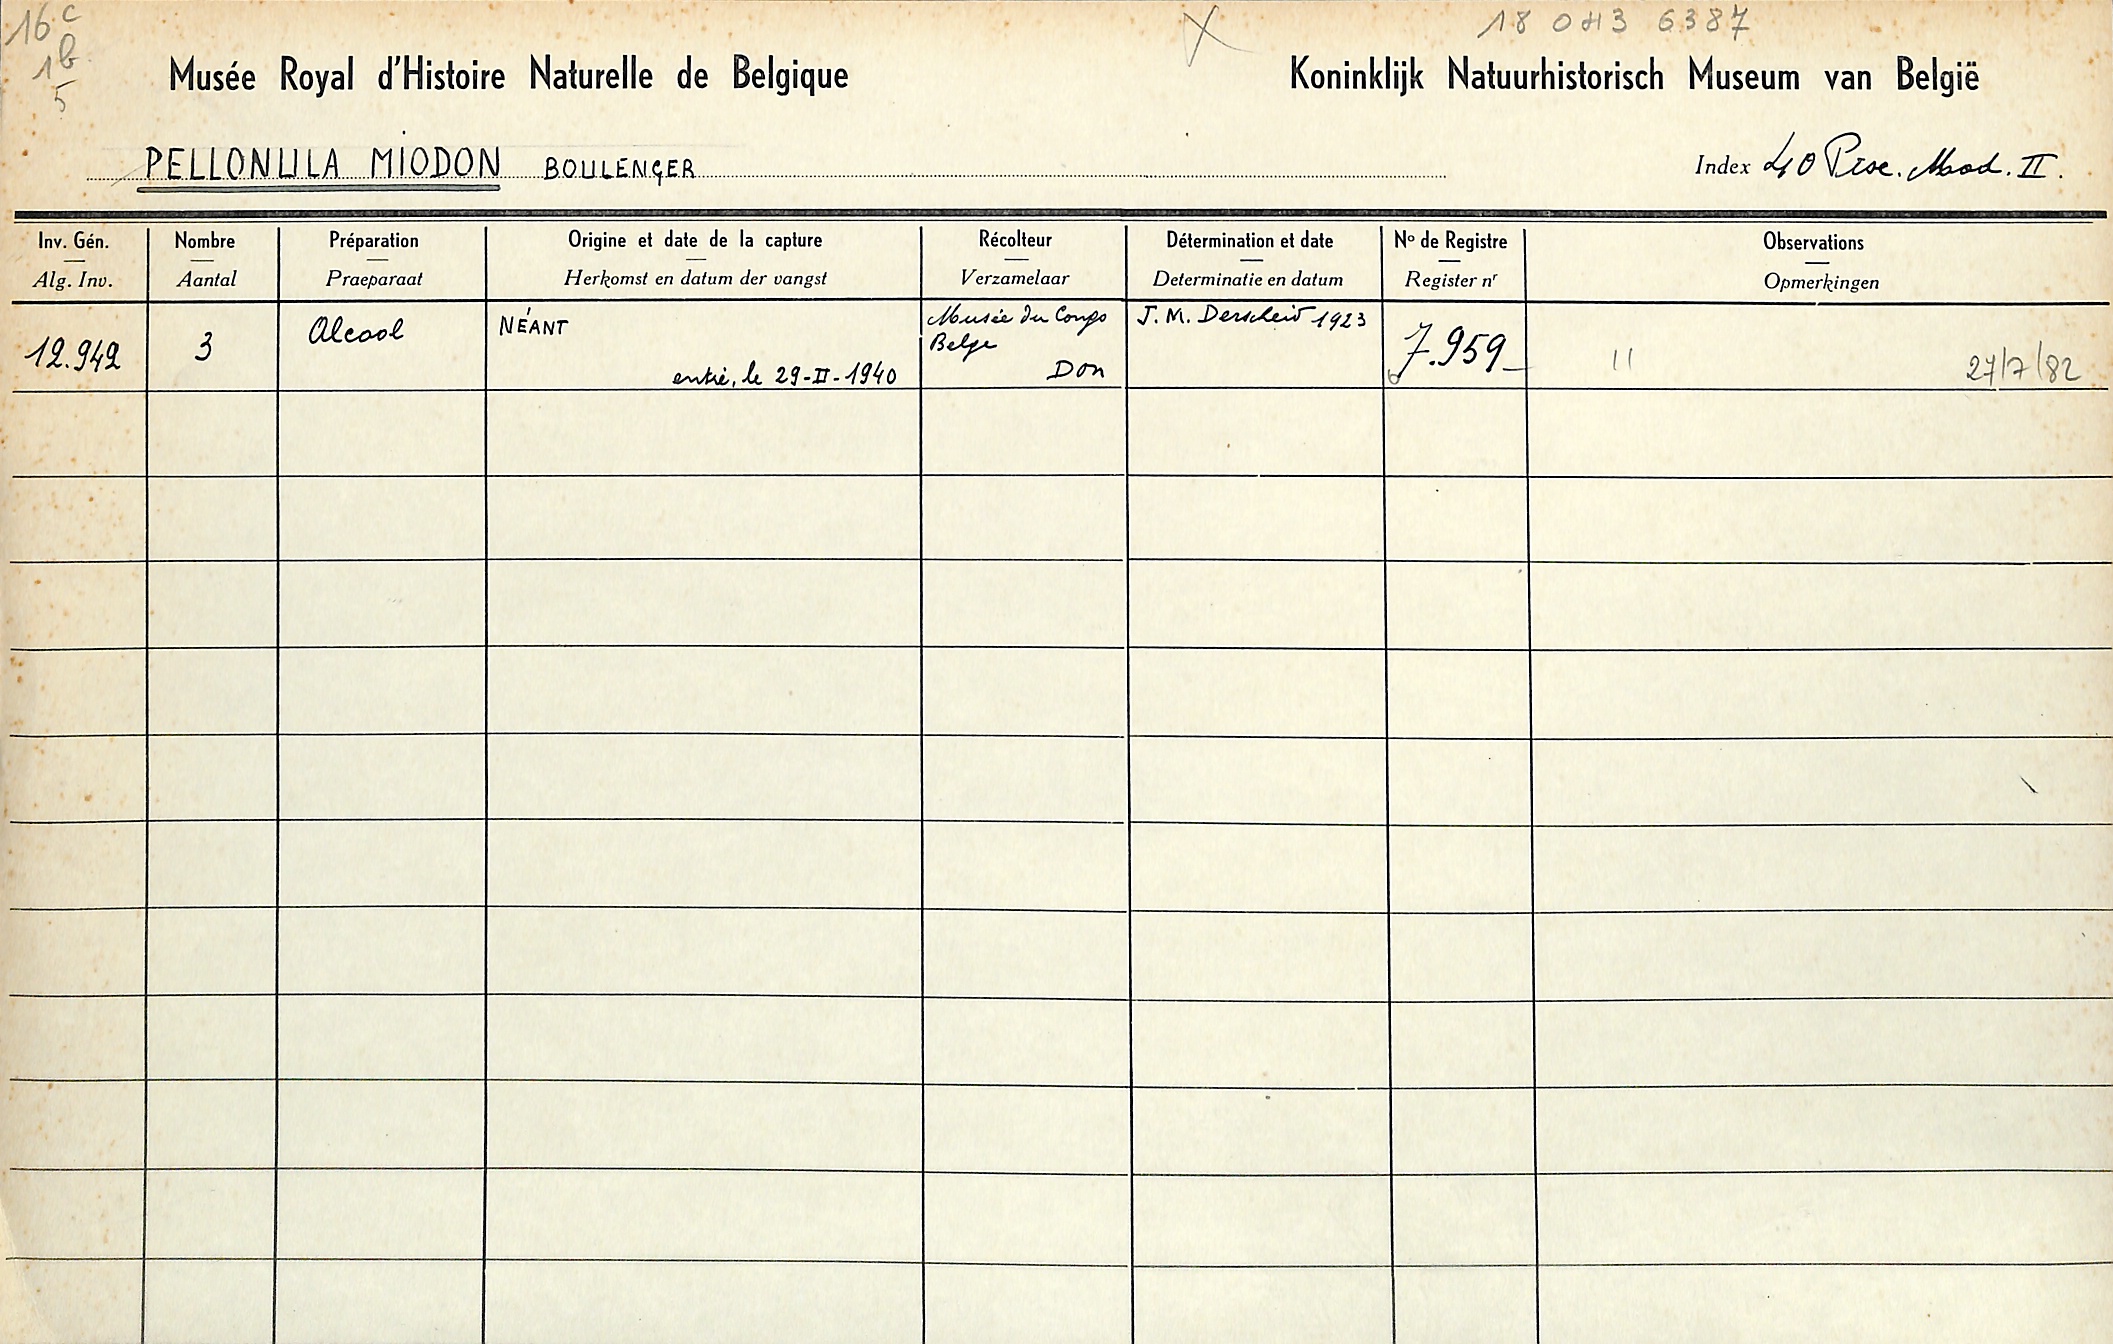 16 c
1 b
5
18 043 6387
Musée Royal d'Histoire Naturelle de Belgique
Koninklijk Natuurhistorisch Museum van België
PELLONULA MIODON BOULENGER
Index 40 Pisc. Mod. II.
Inv. Gén. Nombre Préparation Origine et date de la capture Récolteur Détermination et date No de Registre Observations
Alg. Inv. Aantal Praeparaat Herkomst en datum der vangst Verzamelaar Determinatie en datum Register nr Opmerkingen
12.942 3 Alcool NÉANT
entré, le 29-II-1940
Musée du Congo
Belge
Don
J. M. Derscheid 1923
7.959
27/7/82